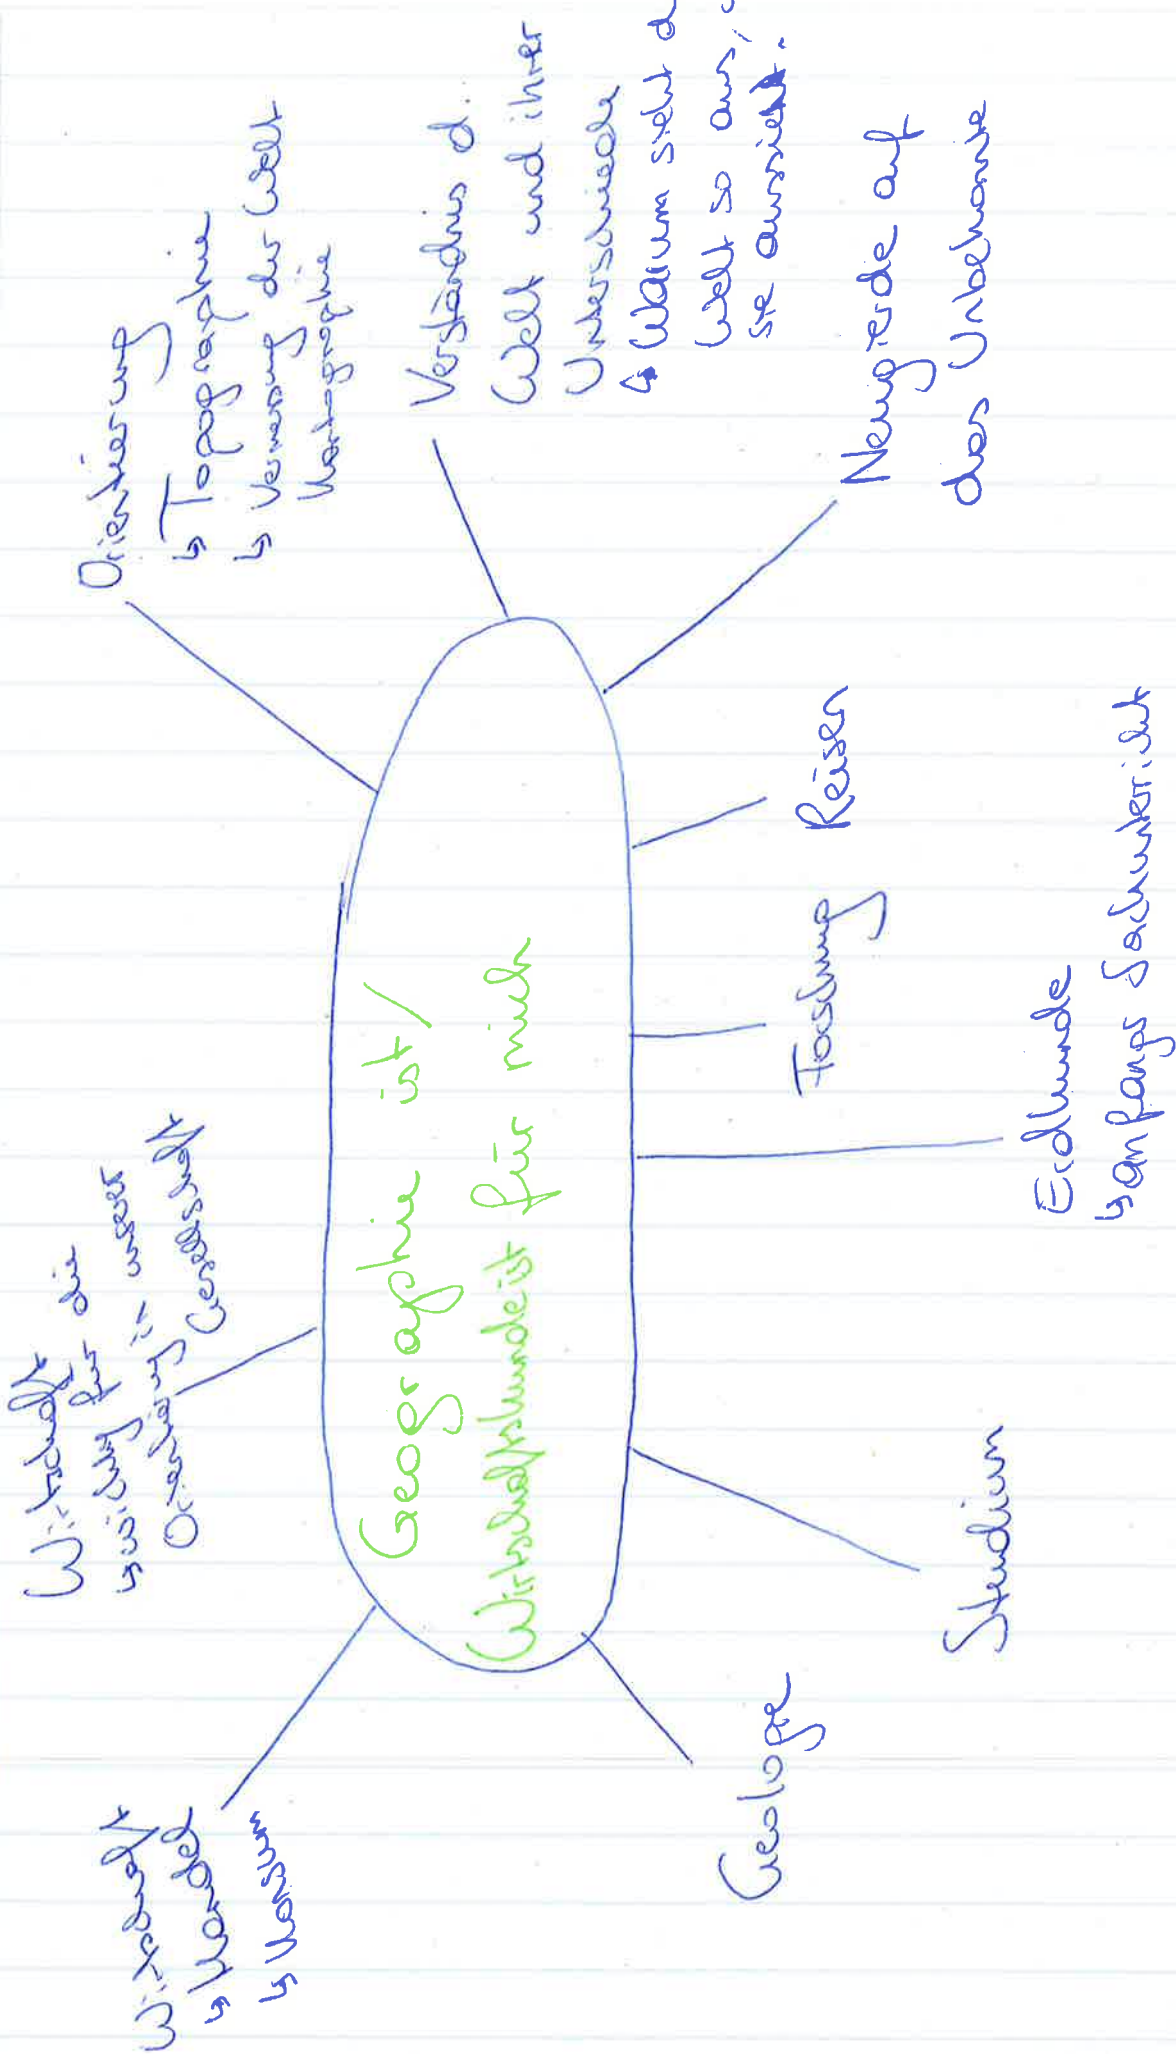 Geographie ist/
Wirtschaftskunde ist für mich
Wirtschaft
↳ Handel
↳ Konsum
Wirtschaft
↳ wichtig für die
Orientierung in unserer
Gesellschaft
Orientierung
↳ Topographie
↳ Vermessung der Welt
Kartographie
Verständnis d.
Welt und ihrer
Unterschiede
↳ Warum sieht d
Welt so aus,
sie aussieht.
Neugierde auf
das Unbekannte
Reisen
Forschung
Erdkunde
↳ anfangs Sachunterricht
Studium
Geologe